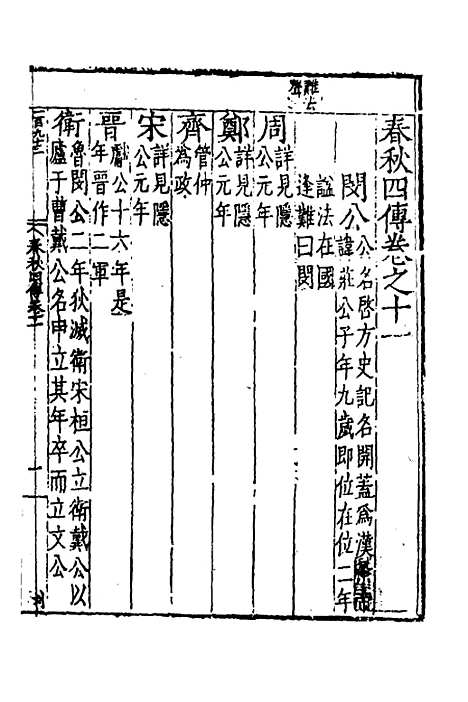 春秋四傳卷之十一
閔公
公名啓方史記名開蓋爲漢景帝
諱莊公子年九歲即位在位二年
諡法在國
逢難曰閔
難去聲
周
詳見隱
公元年
鄭
詳見隱
公元年
齊
管仲
為政
宋
詳見隱
公元年
晉
獻公十六年是
年晉作二軍
衛
魯閔公二年狄滅衛宋桓公立衛戴公以
廬于曹戴公名申立其年卒而立文公
春秋四傳卷十一
一